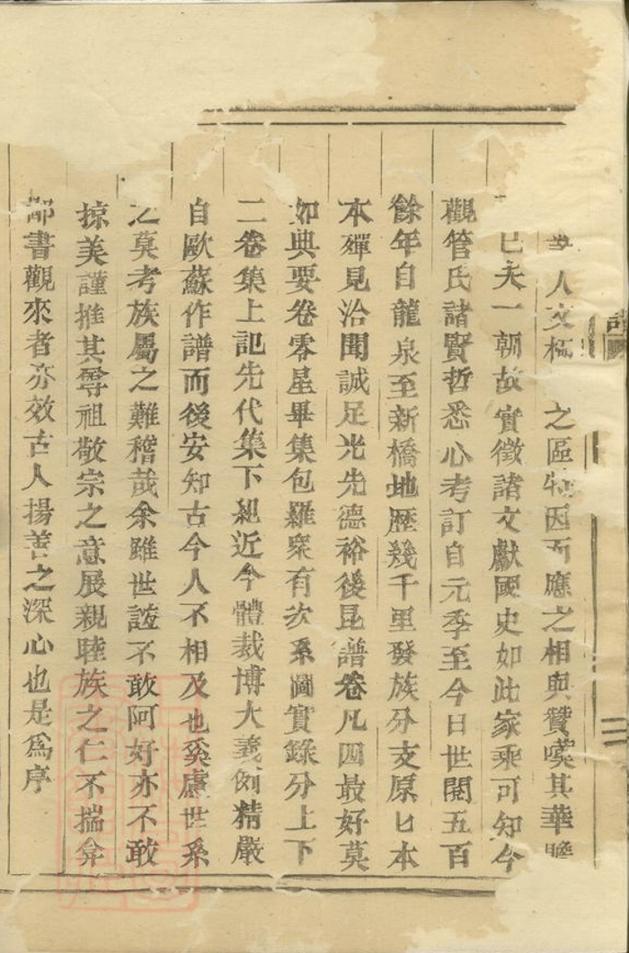 人文 之區 因而應之相與贊嘆其華贍
已夫一朝故實徵諸文獻國史如此家乘可知今
觀管氏諸賢哲悉心考訂自元季至今日世閱五百
餘年自龍泉至新橋地歷幾千里發族分支原匕本
本殫見洽聞誠足光先德裕後昆譜卷凡四最好莫
如典要卷零星畢集包羅衆有次系圖實錄分上下
二卷集上記先代集下紀近今體裁博大義例精嚴
自歐蘇作譜而後安知古今人不相及也奚慮世系
之莫考族屬之難稽哉余雖世誼不敢阿好亦不敢
掠美謹推其尊祖敬宗之意展親睦族之仁不揣弇
鄙書觀來者亦效古人揚善之深心也是爲序